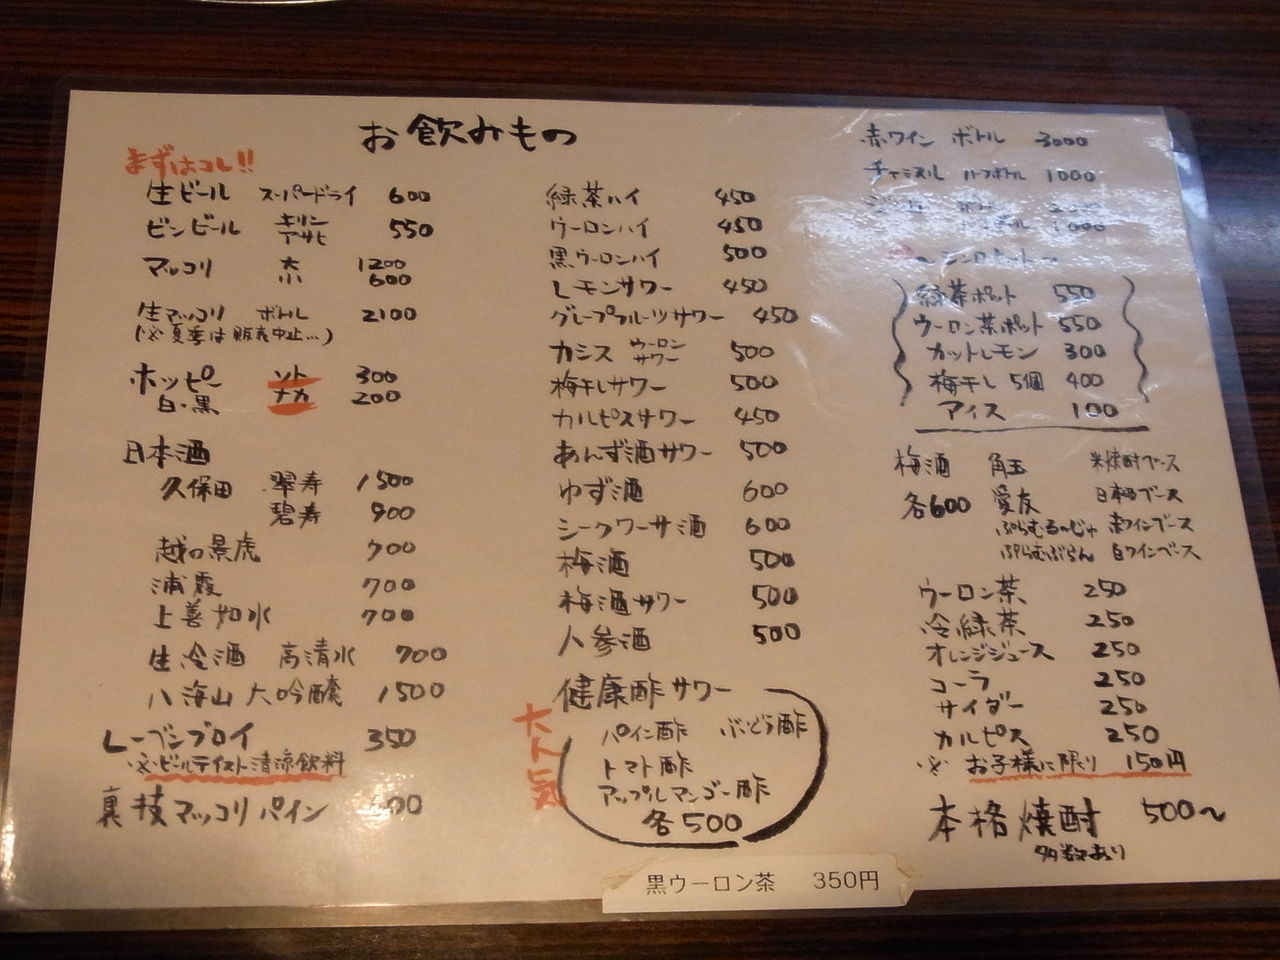 お飲みもの
まずはコレ!!
生ビール スーパードライ 600
ビンビール キリン アサヒ 550
マッコリ 大 1200
小 600
生マッコリ ボトル 2100
(※夏季は販売中止…)
ホッピー ソト 300
白・黒 ナカ 200
日本酒
久保田 翠寿 1500
碧寿 900
越の景虎 700
浦霞 700
上善如水 700
生冷酒 高清水 700
八海山 大吟醸 1500
レーベンブロイ 350
※ビールテイスト清涼飲料
裏技マッコリパイン 600
緑茶ハイ 450
ウーロンハイ 450
黒ウーロンハイ 500
レモンサワー 450
グレープフルーツサワー 450
カシス ウーロン サワー 500
梅干しサワー 500
カルピスサワー 450
あんず酒サワー 500
ゆず酒 600
シークワーサ酒 600
梅酒 500
梅酒サワー 500
人参酒 500
健康酢サワー
大人気
パイン酢 ぶどう酢
トマト酢
アップルマンゴー酢
各500
黒ウーロン茶 350円
赤ワイン ボトル 3000
チャミスル ハーフボトル 1000
緑茶ポット 550
ウーロン茶ポット 550
カットレモン 300
梅干し 5個 400
アイス 100
梅酒 角玉 米焼酎ベース
各600 愛友 日本酒ベース
ぷらむるーじゅ 赤ワインベース
ぷらむぶらん 白ワインベース
ウーロン茶 250
冷緑茶 250
オレンジジュース 250
コーラ 250
サイダー 250
カルピス 250
※お子様に限り 150円
本格焼酎 500〜
多数あり